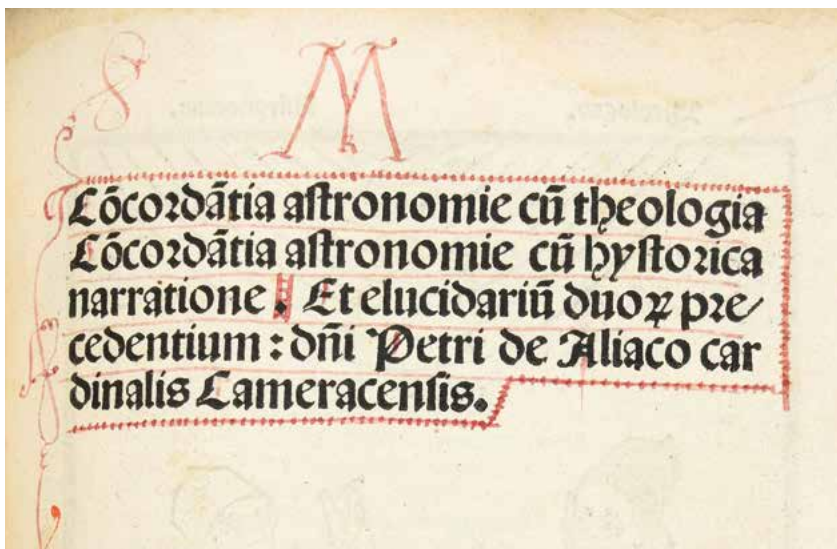 M
Cõcordãtia astronomie cũ theologia
Cõcordãtia astronomie cũ hystorica
narratione. Et elucidariũ duoꝝ pre/
cedentium: dñi Petri de Aliaco car
dinalis Cameracensis.